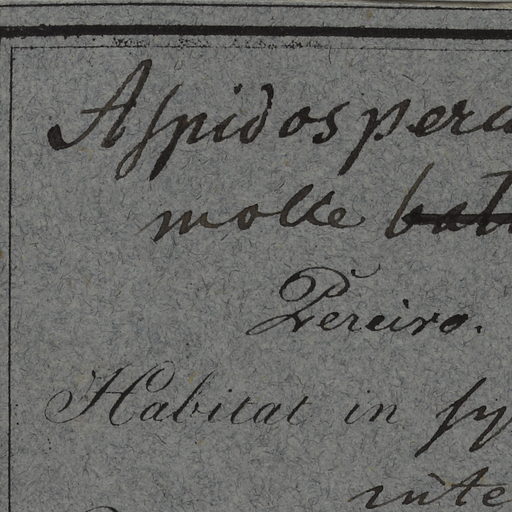 Aſpidosperm
molle bat
Pereiro.
Habitat in ſy
inte